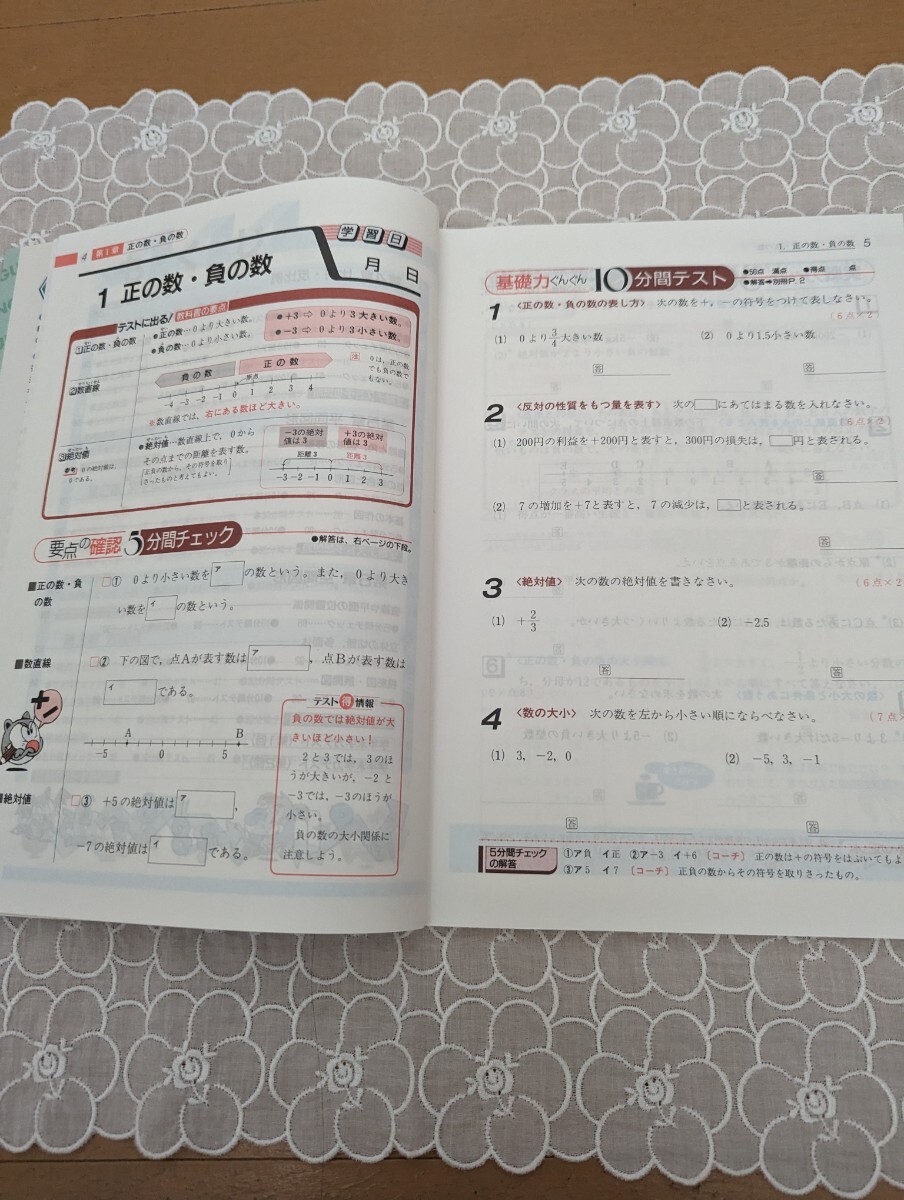 4 第1章 正の数・負の数
学習日
月 日
1 正の数・負の数
テストに出る! 教科書の要点
①正の数・負の数
●正の数…0より大きい数。
●負の数…0より小さい数。
●+3⇨0より3大きい数。
●−3⇨0より3小さい数。
②数直線
負の数 正の数
原点
−4 −3 −2 −1 0 1 2 3 4
注 0は, 正の数でも負の数でもない。
※数直線では, 右にある数ほど大きい。
③絶対値
参考 0の絶対値は, 0である。
●絶対値…数直線上で, 0から
その点までの距離を表す数。
正負の数から, その符号を取り
さったものと考えてもよい。
−3の絶対値は3
+3の絶対値は3
距離3 距離3
−3 −2 −1 0 1 2 3
要点の確認 5分間チェック
●解答は, 右ページの下段。
■正の数・負の数
□① 0より小さい数をアの数という。また, 0より大き
い数をイの数という。
■数直線
□② 下の図で, 点Aが表す数はア, 点Bが表す数は
イである。
+−
A B
−5 0 5
■絶対値
□③ +5の絶対値はア,
−7の絶対値はイである。
テスト得情報
負の数では絶対値が大
きいほど小さい!
2と3では, 3のほ
うが大きいが, −2と
−3では, −3のほうが
小さい。
負の数の大小関係に
注意しよう。
1. 正の数・負の数 5
基礎力ぐんぐん 10分間テスト
●50点 満点 ●得点 点
●解答➔別冊P.2
1 〈正の数・負の数の表し方〉 次の数を+, −の符号をつけて表しなさい。
(6点×2)
(1) 0より3/4大きい数 (2) 0より1.5小さい数
答 答
2 〈反対の性質をもつ量を表す〉 次の□にあてはまる数を入れなさい。
(6点×2)
(1) 200円の利益を+200円と表すと, 300円の損失は, □円と表される。
答
(2) 7の増加を+7と表すと, 7の減少は, □と表される。
答
3 〈絶対値〉 次の数の絶対値を書きなさい。
(6点×2
(1) +2/3 (2) −2.5
答 答
4 〈数の大小〉 次の数を左から小さい順にならべなさい。
(7点×
(1) 3, −2, 0 (2) −5, 3, −1
答 答
5分間チェックの解答
①ア負 イ正 ②ア−3 イ+6 〔コーチ〕 正の数は+の符号をはぶいてもよ
③ア5 イ7 〔コーチ〕 正負の数からその符号を取りさったもの。